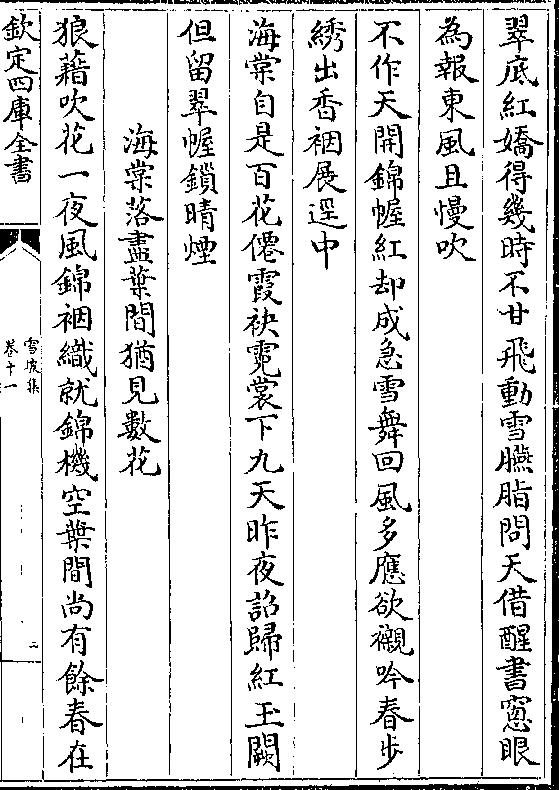 翠底紅嬌得幾時不甘飛動雪臙脂問天借醒書窓眼
為報東風且慢吹
不作天開錦幄紅却成急雪舞回風多應欲襯吟春步
綉出香裀展逕中
海棠自是百花僊霞袂霓裳下九天昨夜詔歸紅玉闕
但留翠幄鎖晴煙
海棠落盡葉間猶見數花
狼藉吹花一夜風錦裀織就錦機空葉間尚有餘春在
欽定四庫全書
雪坡集
卷十一
二